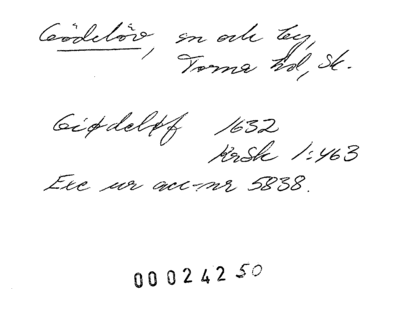 Gödelöv, sn och by,
Torna hd, Sk.
Giødeløf 1632
KrSk 1:463
Exc ur acc-nr 5838.
00024250